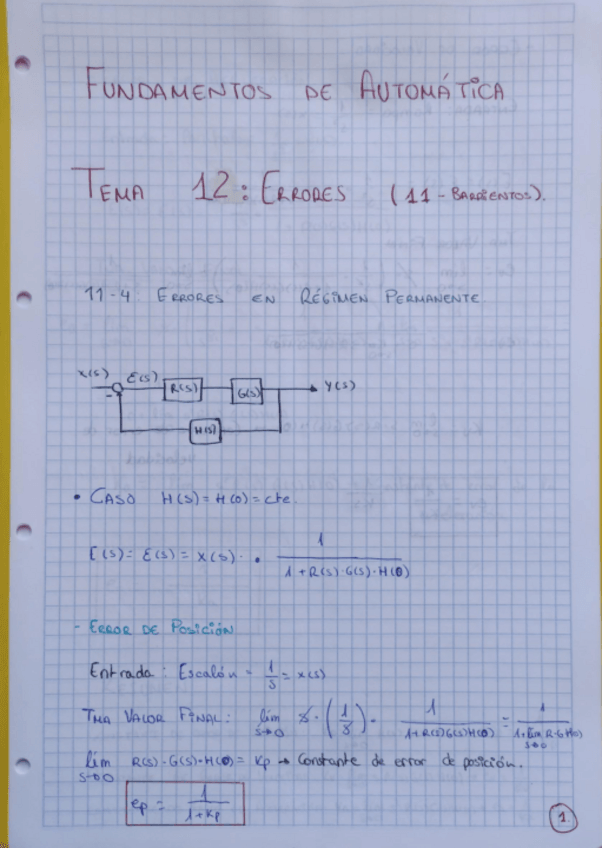 FUNDAMENTOS DE AUTOMÁTICA
TEMA 12: ERRORES (11-BARRIENTOS).
11-4 ERRORES EN RÉGIMEN PERMANENTE.
X(s) E(s) R(s) G(s) Y(s)
-
H(s)
• CASO H(s) = H(0) = cte.
E(s) = Ɛ(s) = X(s) · 1 / (1 + R(s)·G(s)·H(0))
- ERROR DE POSICIÓN
Entrada: Escalón = 1/s = X(s)
TMA VALOR FINAL: lím s→0 s · (1/s) · 1 / (1+R(s)G(s)H(0)) = 1 / (1+lím s→0 R·G·H(0))
lím s→0 R(s)·G(s)·H(0) = Kp → Constante de error de posición.
ep = 1 / (1+Kp)
1.